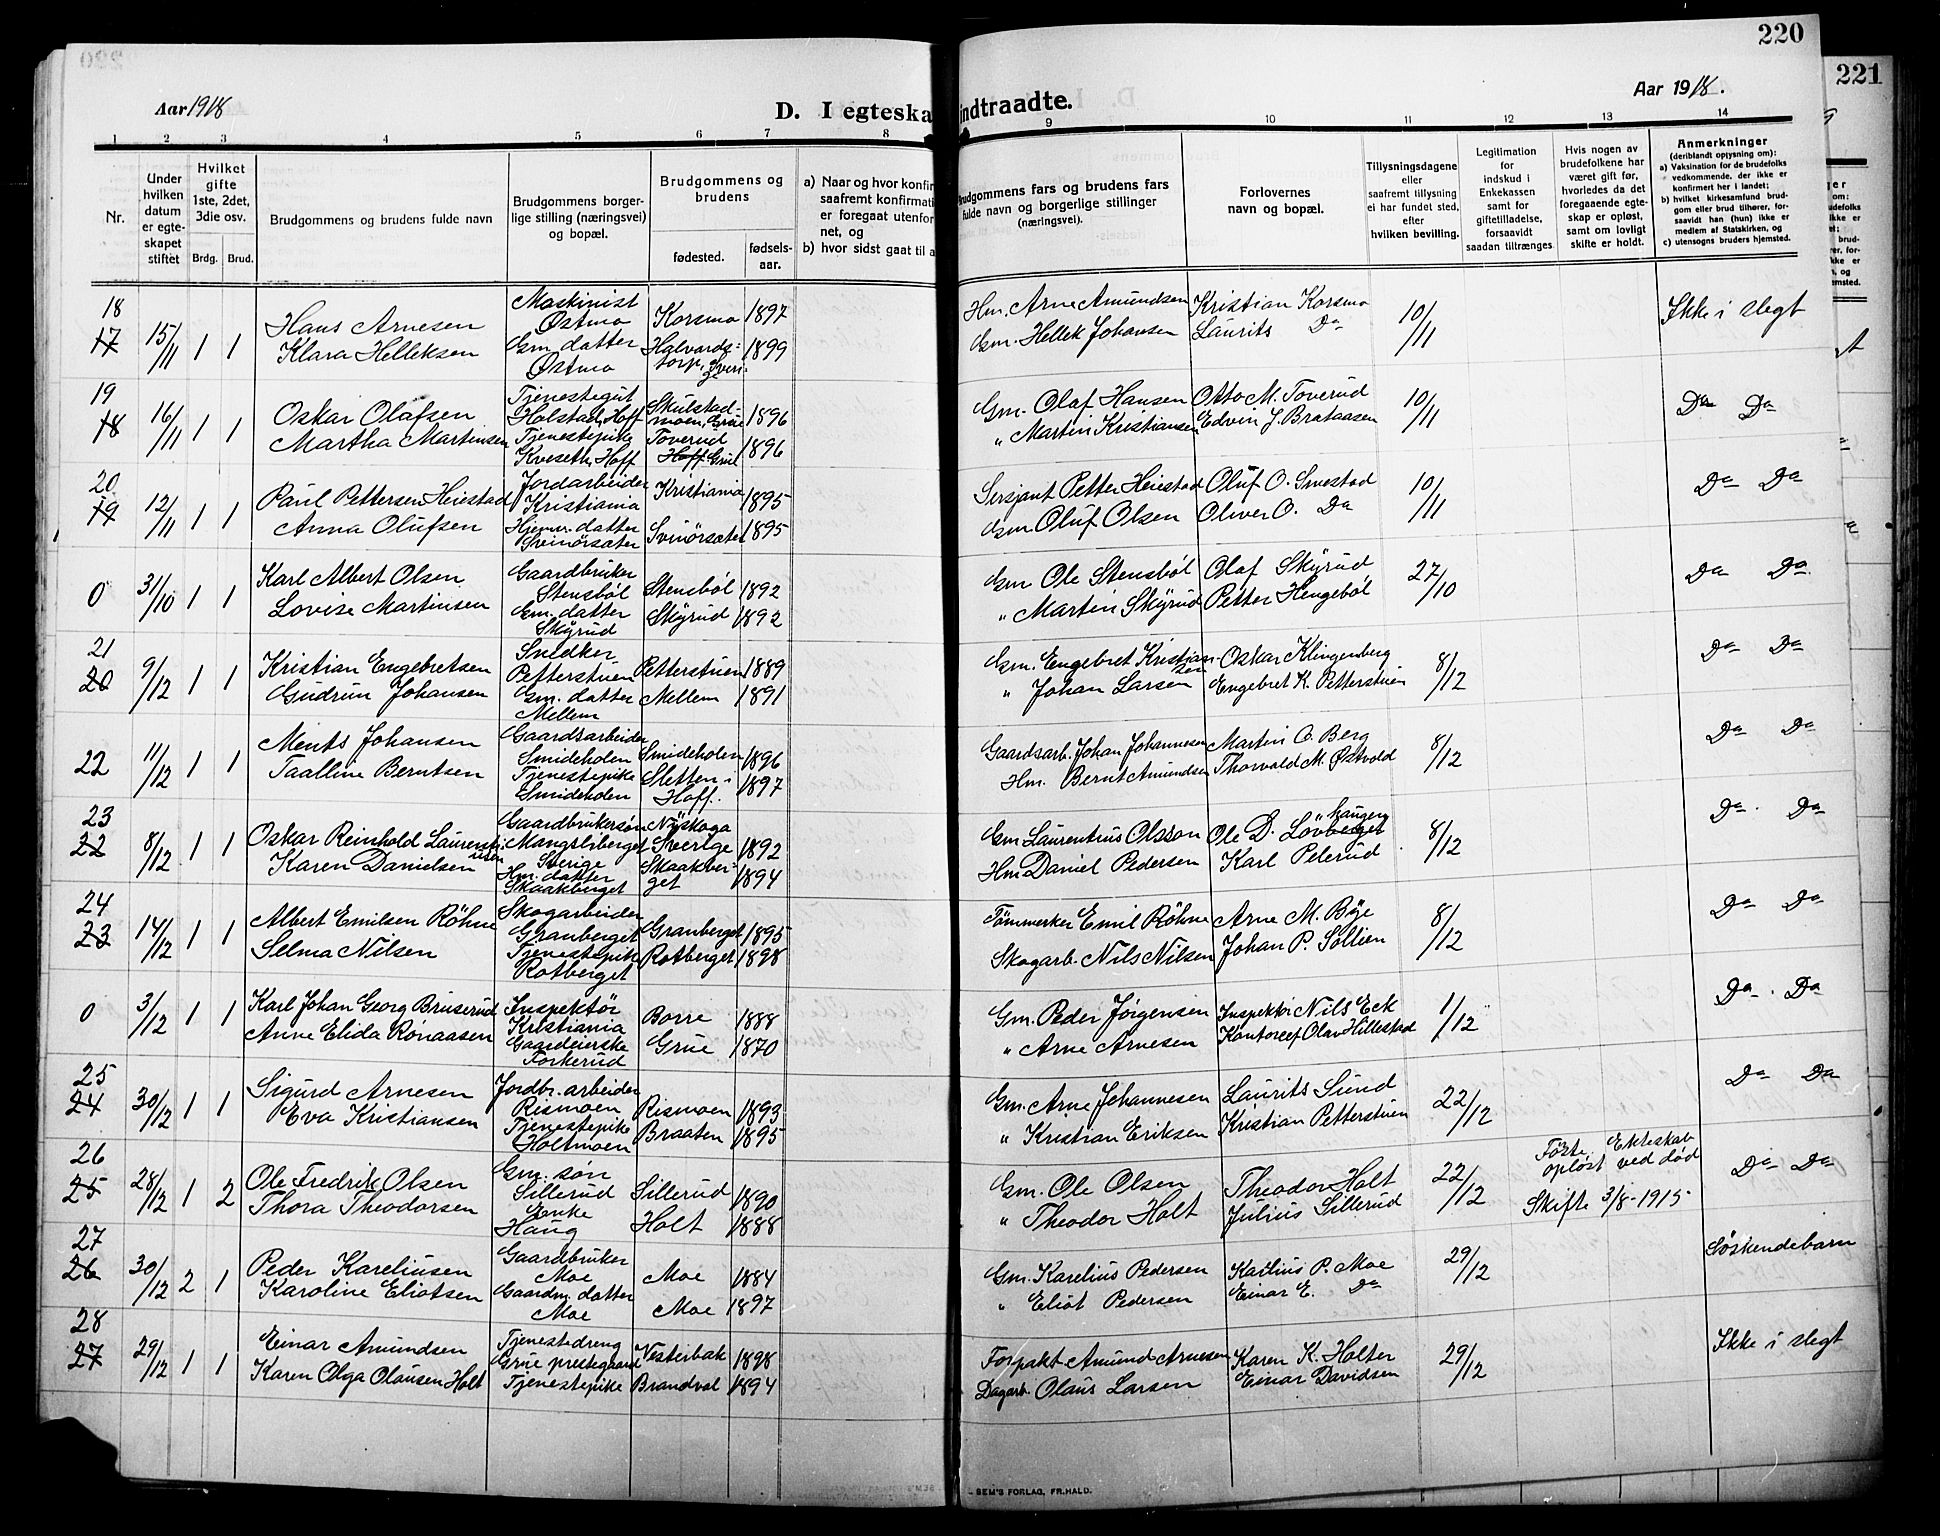 220
221
Aar 1918
D. I egteska
indtraadte.
Aar 1918.
1 2 3 4 5 6 7 8 9 10 11 12 13 14
Nr.
Under hvilken datum er egteskapet stiftet
Hvilket gifte 1ste, 2det, 3die osv.
Brdg. Brud.
Brudgommens og brudens fulde navn
Brudgommens borgerlige stilling (næringsvei) og bopæl.
Brudgommens og brudens
fødested. fødselsaar.
a) Naar og hvor konfir
saafremt konfirmati
er foregaat utenfor
net, og
b) hvor sidst gaat til a
Brudgommens fars og brudens fars fulde navn og borgerlige stillinger (næringsvei).
Forlovernes navn og bopæl.
Tillysningsdagene eller saafremt tillysning ei har fundet sted, efter hvilken bevilling.
Legitimation for indskud i Enkekassen samt for giftetilladelse, forsaavidt saadan tiltrænges
Hvis nogen av brudefolkene har været gift før, hvorledes da det foregaaende egteskap er opløst, samt om lovligt skifte er holdt.
Anmerkninger
(deriblandt oplysning om):
a) Vaksination for de brudefolks vedkommende, der ikke er konfirmert her i landet;
b) hvilket kirkesamfund brudgom eller brud tilhører, forsaavidt han (hun) ikke er medlem av Statskirken, og
c) utensogns bruders hjemsted.
18
17 15/11 1 1 Hans Arnesen Maskinist Østmo Korsmo 1897 Hm. Arne Amundsen Kristian Korsmo 10/11 Ikke i slegt
Klara Helleksen Gm. datter Østmo Halvardstorp, Sverige 1899 Gm. Hellek Johansen Laurits Do
19
18 16/11 1 1 Oskar Olafsen Tjenestegut Holstad, Hoff Skulstadmoen, Grue 1896 Gm. Olaf Hansen Otto M. Toverud 10/11 Do Do
Martha Martinsen Tjenestepike Kveseth, Hoff Toverud Hoff Grue 1896 " Martin Kristiansen Edvin J. Brataasen
20
19 12/11 1 1 Paul Pettersen Heiestad Jordarbeider Kristiania Kristiania 1895 Sersjant Petter Heiestad Oluf O. Smestad 10/11 Do Do
Anna Olufsen Hjemv. datter Svinörsæter Svinörsæter 1895 Gm. Oluf Olsen Oliver O. Do
0 31/10 1 1 Karl Albert Olsen Gaardbruker Stensböl Stensböl 1892 Gm Ole Stensböl Olaf Skyrud 27/10 Do Do
Lovise Martinsen Gm. datter Skyrud Skyrud 1892 " Martin Skyrud Petter Hengeböl
21
20 9/12 1 1 Kristian Engebretsen Snedker Petterstuen Petterstuen 1889 Gm. Engebret Kristiansen Oskar Klingenberg 8/12 Do Do
Gudrun Johansen Gm. datter Mellem Mellem 1891 " Johan Larsen Engebret K. Petterstuen
22 11/12 1 1 Ments Johansen Gaardsarbeider Smideholen Smideholen 1896 Gaardsarb. Johan Johannesen Martin O. Berg 8/12 Do Do
Taalline Berntsen Tjenestepike Smideholen Sletten i Hoff. 1897 Hm. Bernt Amundsen Thorvald M. Østvold
23
22 8/12 1 1 Oskar Reinhold Laurentiusen Gaardbrukersøn Mangsliberget Sverige Nyskoga Sverige 1892 Gm Laurentius Olsson Ole D. Lövberget 8/12 Do Do
Karen Danielsen Hm. datter Skaakberget Skaakberget 1894 Hm Daniel Pedersen Karl Pelerud
24
23 14/12 1 1 Albert Emilsen Röhne Skogarbeider Granberget Granberget 1895 Tömmerker Emil Röhne Arne M. Bye 8/12 Do Do
Selma Nilsen Tjenestepike Rotberget Rotberget 1898 Skogarb. Nils Nilsen Johan P. Sollien
0 3/12 1 1 Karl Johan Georg Bruserud Inspektör Kristiania Borre 1888 Gm. Peder Jörgensen Inspektör Nils Eck 1/12 Do Do
Anne Elida Rønaasen Gaardeierske Torkerud Grue 1870 " Arne Arnesen Kontorcef Olav Hillestad
25
24 30/12 1 1 Sigurd Arnesen Jordbr. arbeider Rismoen Rismoen 1893 Gm. Arne Johannesen Laurits Sund 22/12 Do Do
Eva Kristiansen Tjenestepike Holtmoen Braaten 1895 " Kristian Eriksen Kristian Petterstuen
26
25 28/12 1 2 Ole Fredrik Olsen Gm. søn Sillerud Sillerud 1890 Gm. Ole Olsen Theodor Holt 22/12 Første Ekteskab opløst ved död Do Do
Thora Theodorsen Enke Haug Holt 1888 " Theodor Holt Julius Sillerud Skifte 3/8-1915
27
26 30/12 2 1 Peder Kareliusen Gaardbruker Moe Moe 1884 Gm. Karelius Pedersen Karlius P. Moe 29/12 Söskendebarn
Karoline Eliotsen Gaardm. datter Moe Moe 1897 " Eliot Pedersen Einar E. Do
28
27 29/12 1 1 Einar Amundsen Tjenestedreng Grue prestegaard Vesterbak 1898 Forpakt. Amund Arnesen Karen K. Holter 29/12 Ikke i slegt
Karen Olga Olausen Holt Tjenestepike Brandval 1894 Dagarb. Olaus Larsen Einar Davidsen
SEM'S FORLAG, FR.HALD.